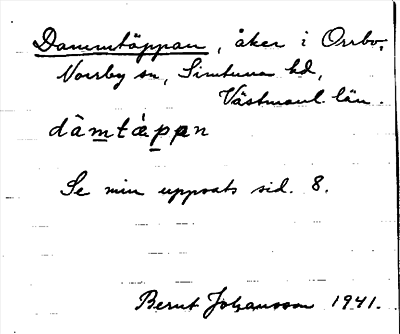 Dammtäppan, åker i Orrbo,
Norrby sn, Simtuna hd,
Västmanl. län.
dàmtápan
Se min uppsats sid. 8.
Bernt Johansson 1941.